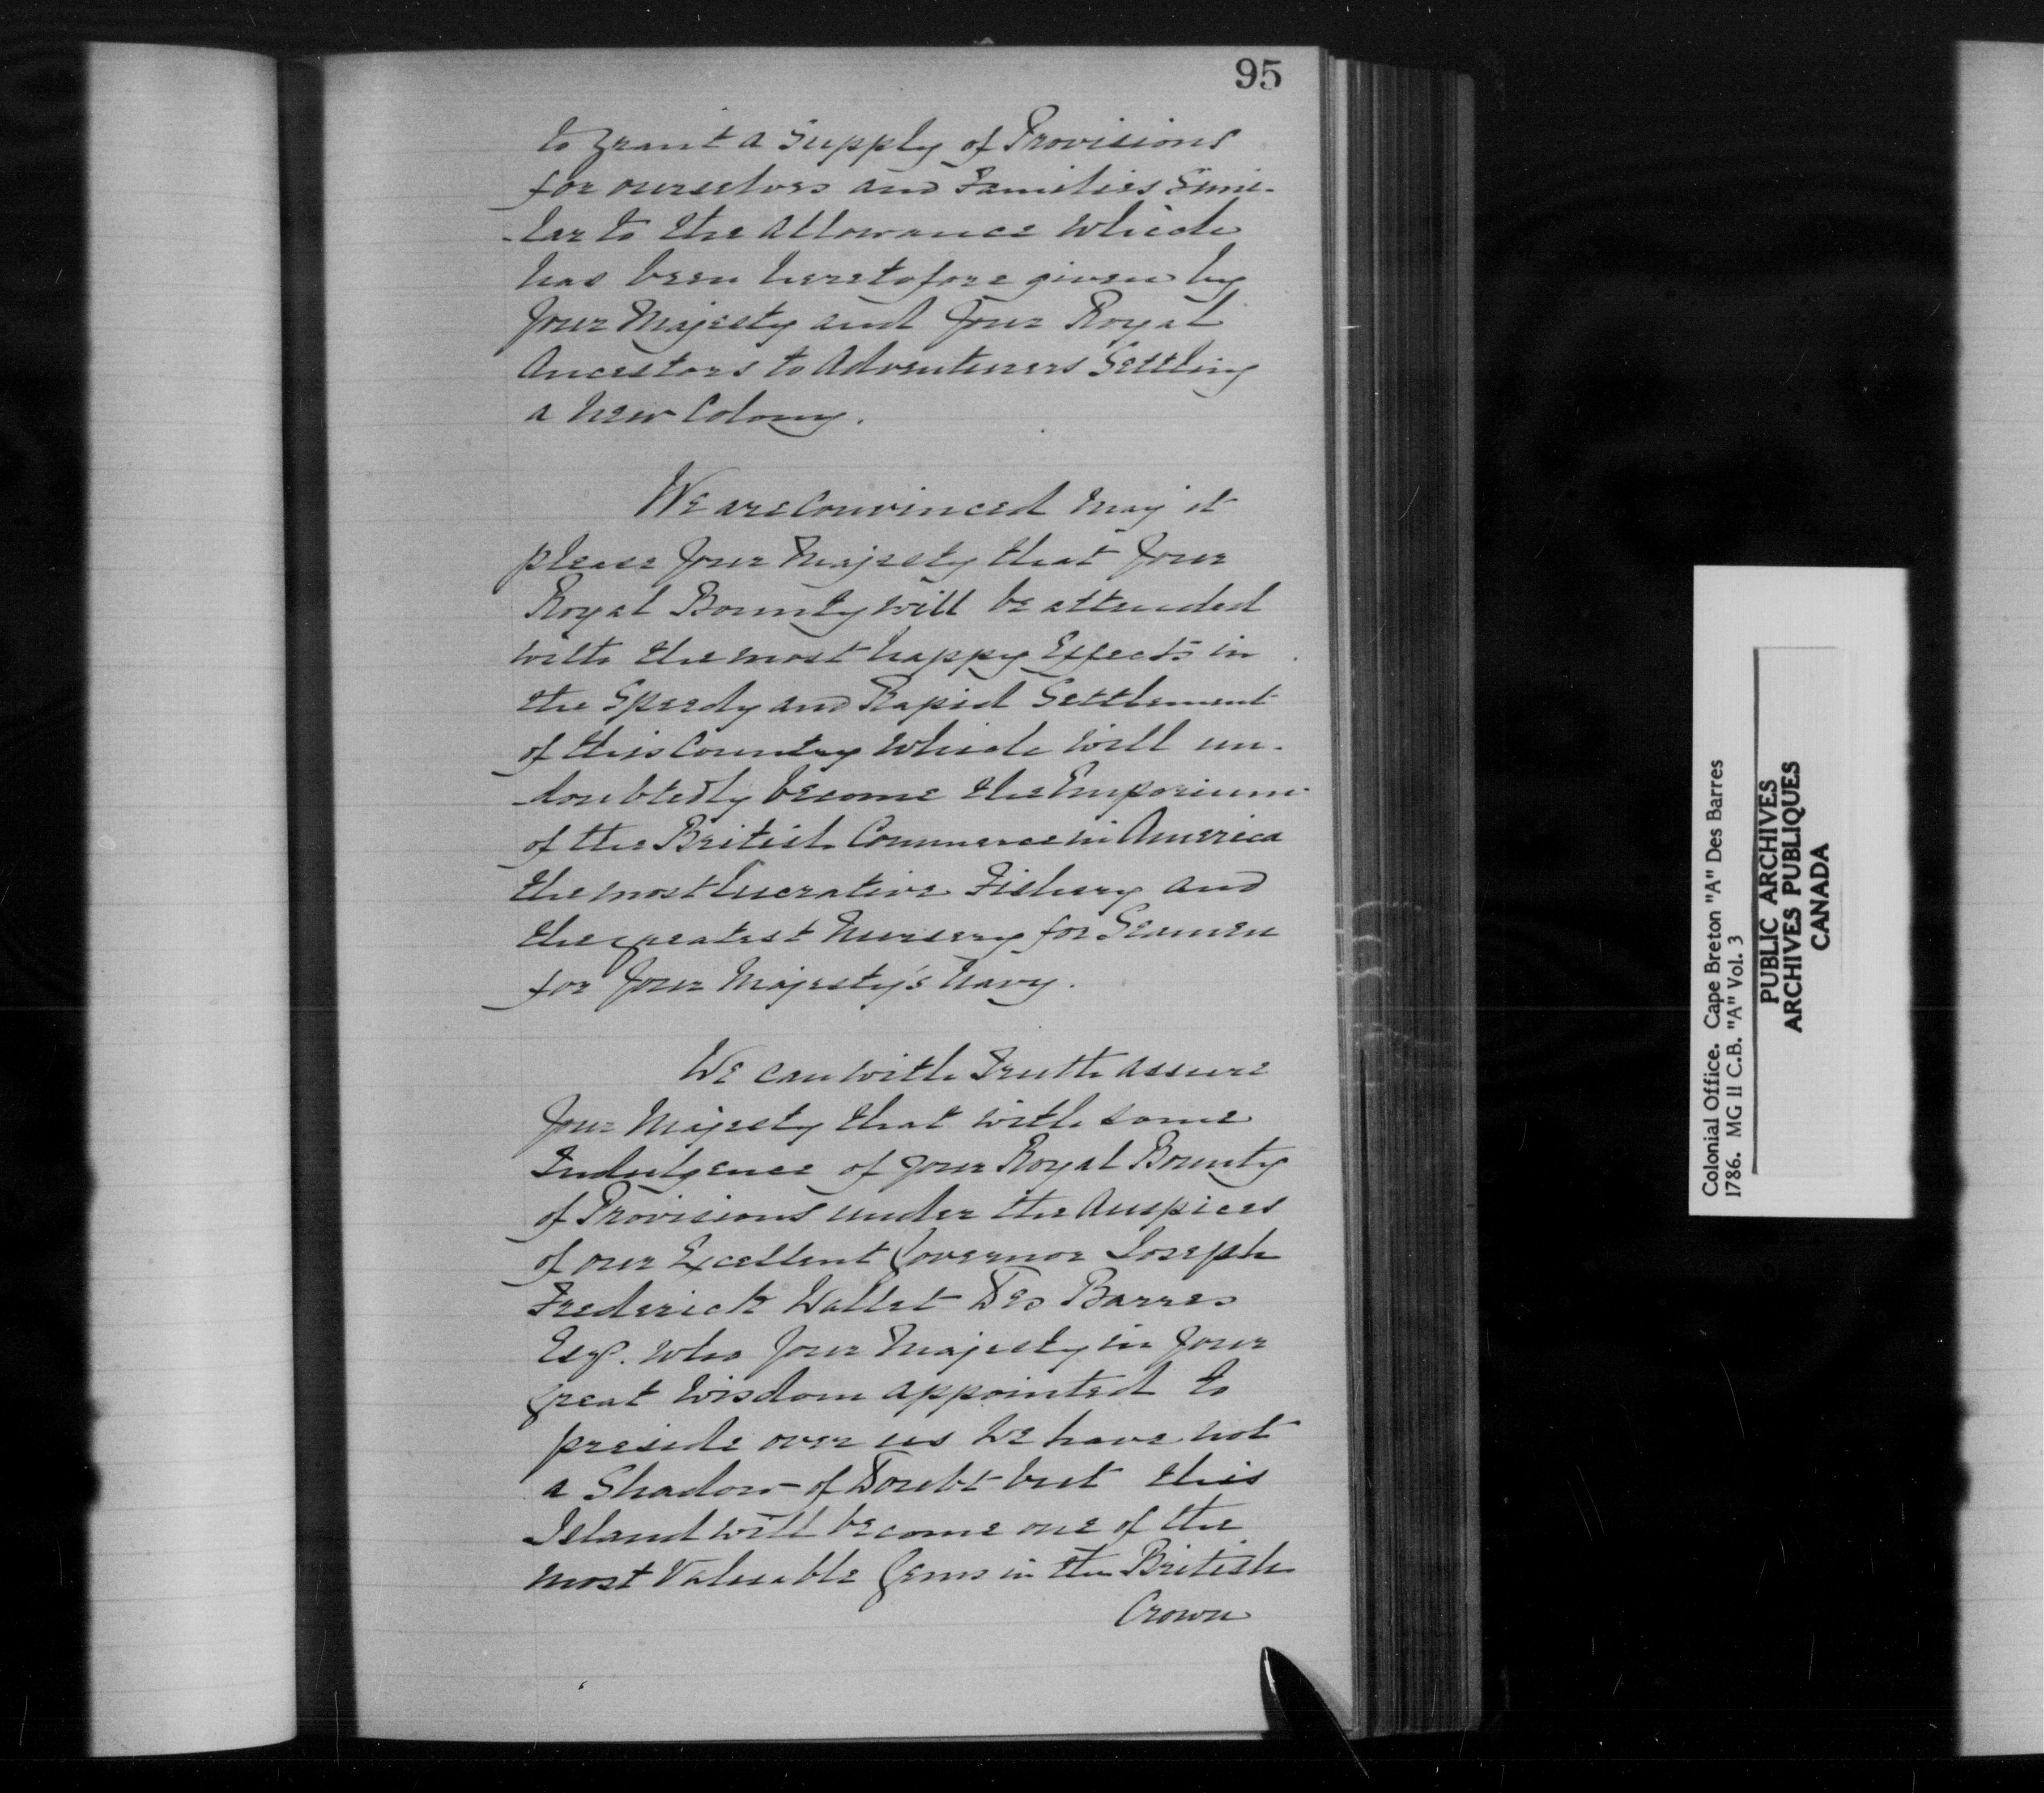 95
to grant a Supply of Provisions
for ourselves and Families Simi-
-lar to the Allowance which
has been heretofore given by
Your Majesty and Your Royal
Ancestors to Adventurers Settling
a new Colony.
We are Convinced may it
please Your Majesty that Your
Royal Bounty will be attended
with the most happy Effects in
the Speedy and Rapid Settlement
of this Country which will un-
-doubtedly become the Emporium
of the British Commerce in America
the most lucrative Fishery and
the greatest Nursery for Seamen
for Your Majesty's Navy.
We can with Truth assure
Your Majesty that with some
Indulgence of your Royal Bounty
of Provisions under the Auspices
of our Excellent Governor Joseph
Frederick Wallet Des Barres
Esq. who Your Majesty in Your
great wisdom appointed to
preside over us we have not
a Shadow of Doubt but this
Island will become one of the
most Valuable Gems in the British
Crown
Colonial Office. Cape Breton "A" Des Barres
1786. MG 11 C.B. "A" Vol. 3
PUBLIC ARCHIVES
ARCHIVES PUBLIQUES
CANADA